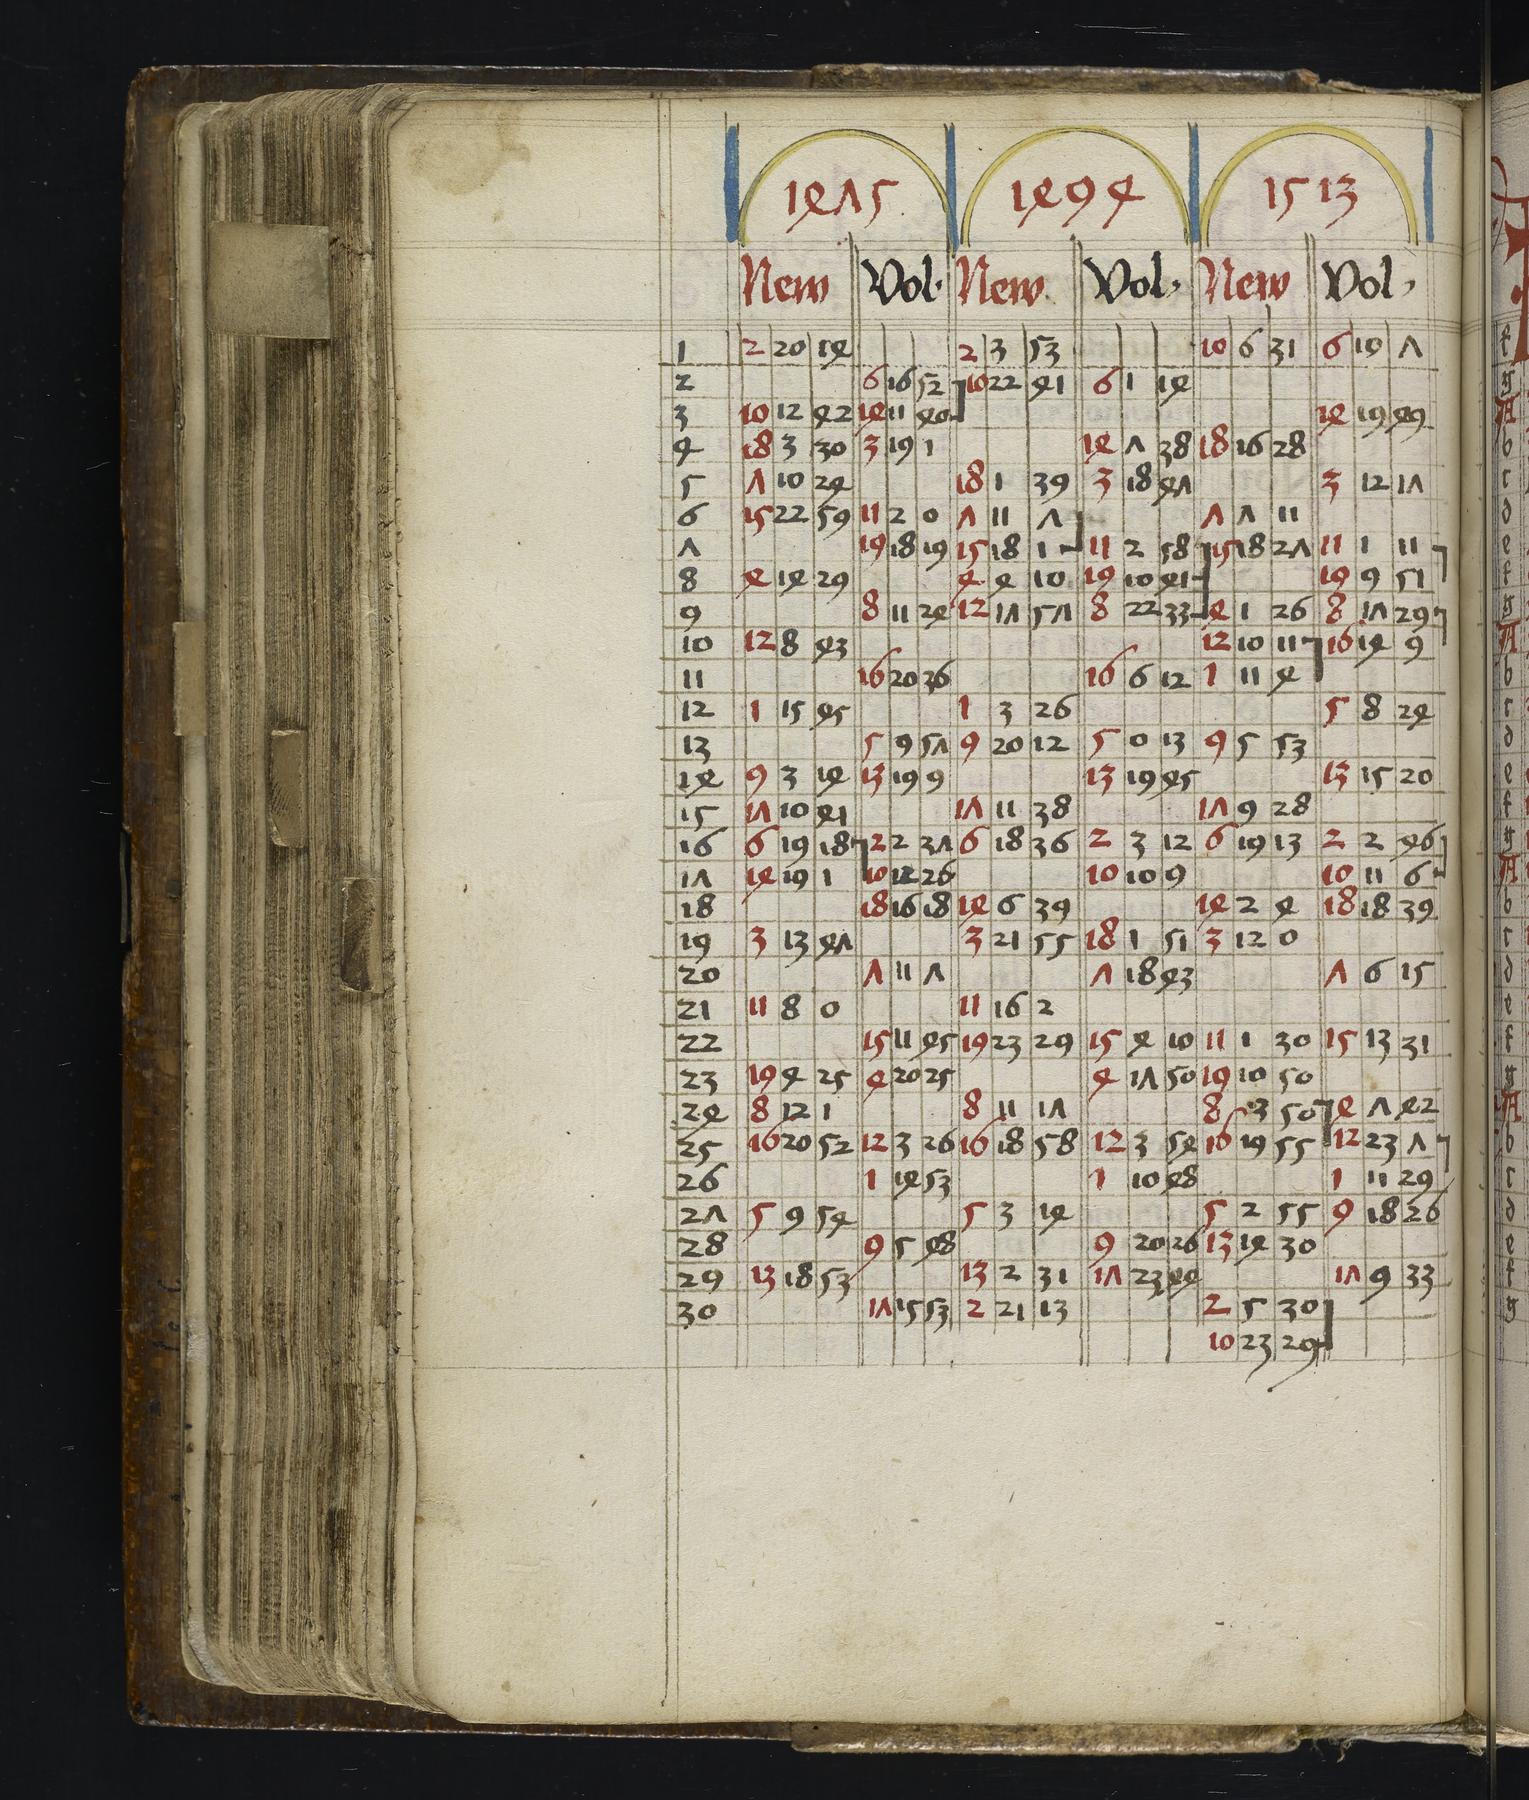 1475 1494 1513
New Vol. New Vol. New Vol.
1 2 20 14 2 3 53 10 6 31 6 19 7
2 6 16 52 10 22 41 6 1 14
3 10 12 42 14 11 40 14 19 49
4 18 3 30 3 19 1 14 7 38 18 16 28
5 7 10 24 18 1 39 3 18 47 3 12 17
6 15 22 59 11 2 0 7 11 7 7 7 11
7 19 18 19 15 18 1 11 2 58 15 18 27 11 1 11
8 4 14 29 4 4 10 19 10 41 19 9 51
9 8 11 24 12 17 57 8 22 33 4 1 26 8 17 29
10 12 8 43 12 10 11 16 14 9
11 16 20 36 16 6 12 1 11 4
12 1 15 45 1 3 26 5 8 24
13 5 9 57 9 20 12 5 0 13 9 5 53
14 9 3 14 13 19 9 13 19 45 13 15 20
15 17 10 41 17 11 38 17 9 28
16 6 19 18 2 2 37 6 18 36 2 3 12 6 19 13 2 2 46
17 14 19 1 10 12 26 10 10 9 10 11 6
18 18 16 18 14 6 39 14 2 4 18 18 39
19 3 13 47 3 21 55 18 1 51 3 12 0
20 7 11 7 7 18 43 7 6 15
21 11 8 0 11 16 2
22 15 11 45 19 23 29 15 4 10 11 1 30 15 13 31
23 19 4 25 4 20 25 4 17 50 19 10 50
24 8 12 1 8 11 17 8 3 50 4 7 42
25 16 20 52 12 3 26 16 18 58 12 3 54 16 19 55 12 23 7
26 1 14 53 1 10 48 1 11 29
27 5 9 54 5 3 14 5 2 55 9 18 26
28 9 5 48 9 20 26 13 14 30
29 13 18 53 13 2 31 17 23 44 17 9 33
30 17 15 53 2 21 13 2 5 30
10 23 29